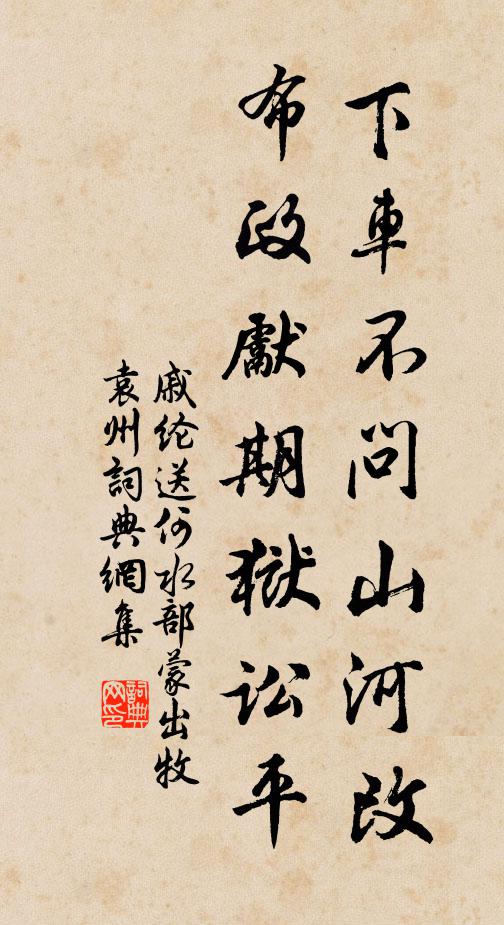 下車不問山河改
布政獻期獄訟平
戚纶送何水部蒙出牧
袁州詞典網集
詞典
网印